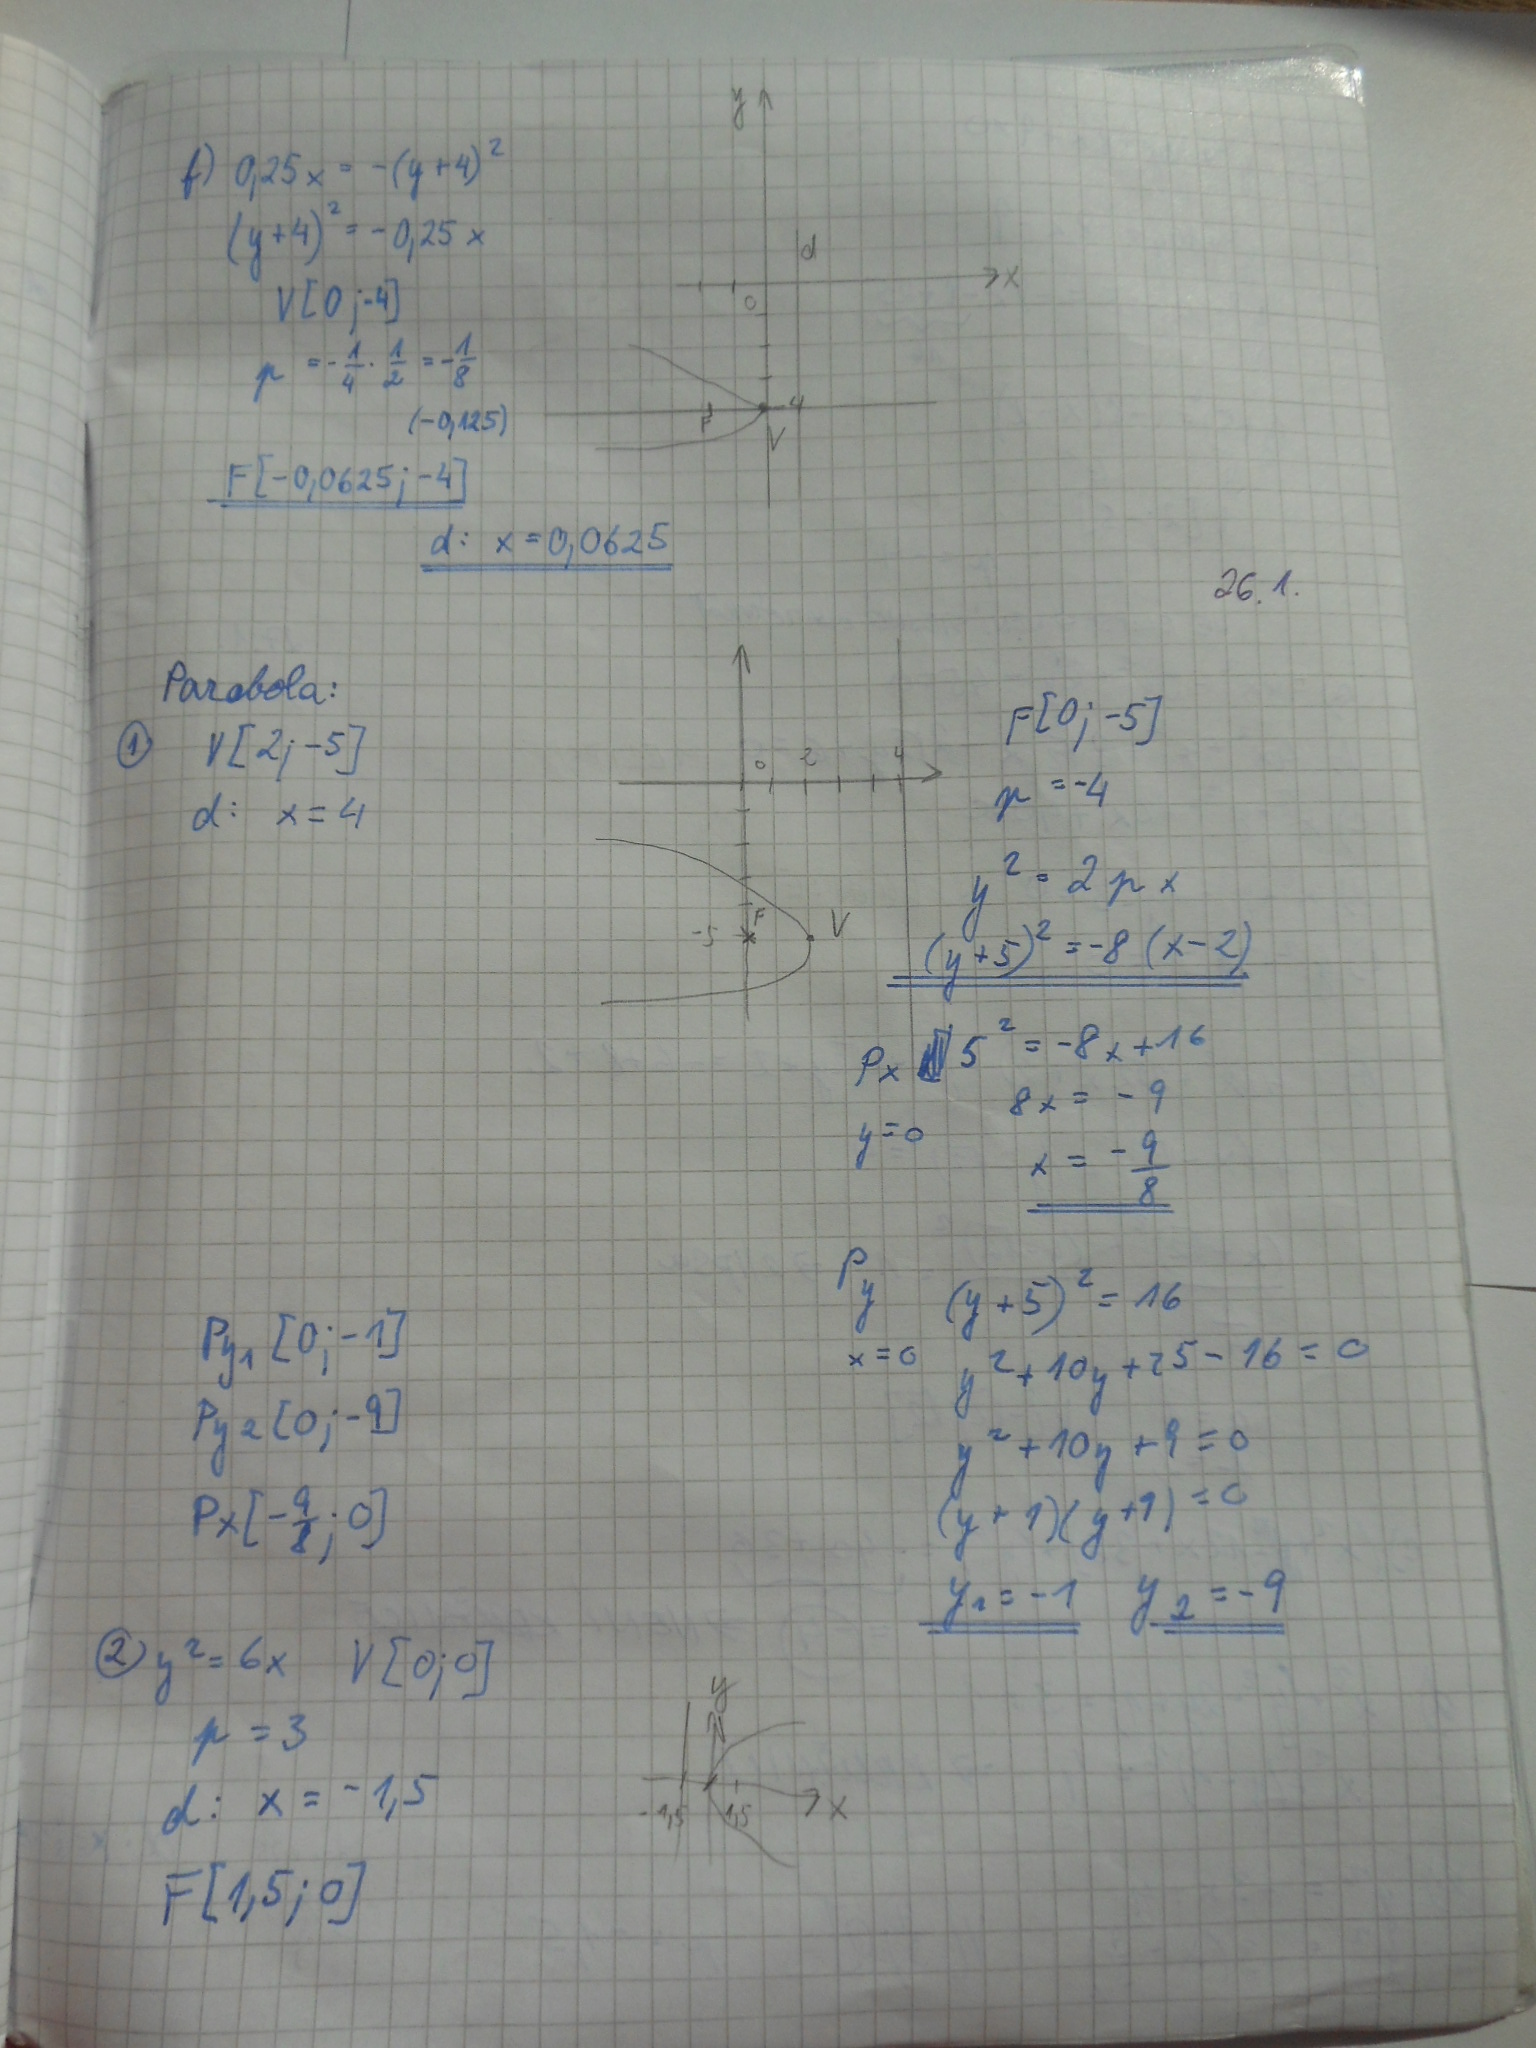 f) 0,25x = -(y+4)²
(y+4)² = -0,25x
V[0;-4]
p = -1/4 · 1/2 = -1/8
(-0,125)
F[-0,0625;-4]
d: x = 0,0625
y
d
x
0
-4
F
V
26.1.
Parabola:
① V[2;-5]
d: x = 4
0 2 4
F
-5
V
F[0;-5]
p = -4
y² = 2px
(y+5)² = -8(x-2)
Px 5² = -8x+16
y=0 8x = -9
x = -9/8
Py (y+5)² = 16
x=0 y²+10y+25-16=0
y²+10y+9=0
(y+1)(y+9)=0
y1=-1 y2=-9
Py1[0;-1]
Py2[0;-9]
Px[-9/8;0]
② y²=6x V[0;0]
p = 3
d: x = -1,5
F[1,5;0]
y
-1,5 1,5 x